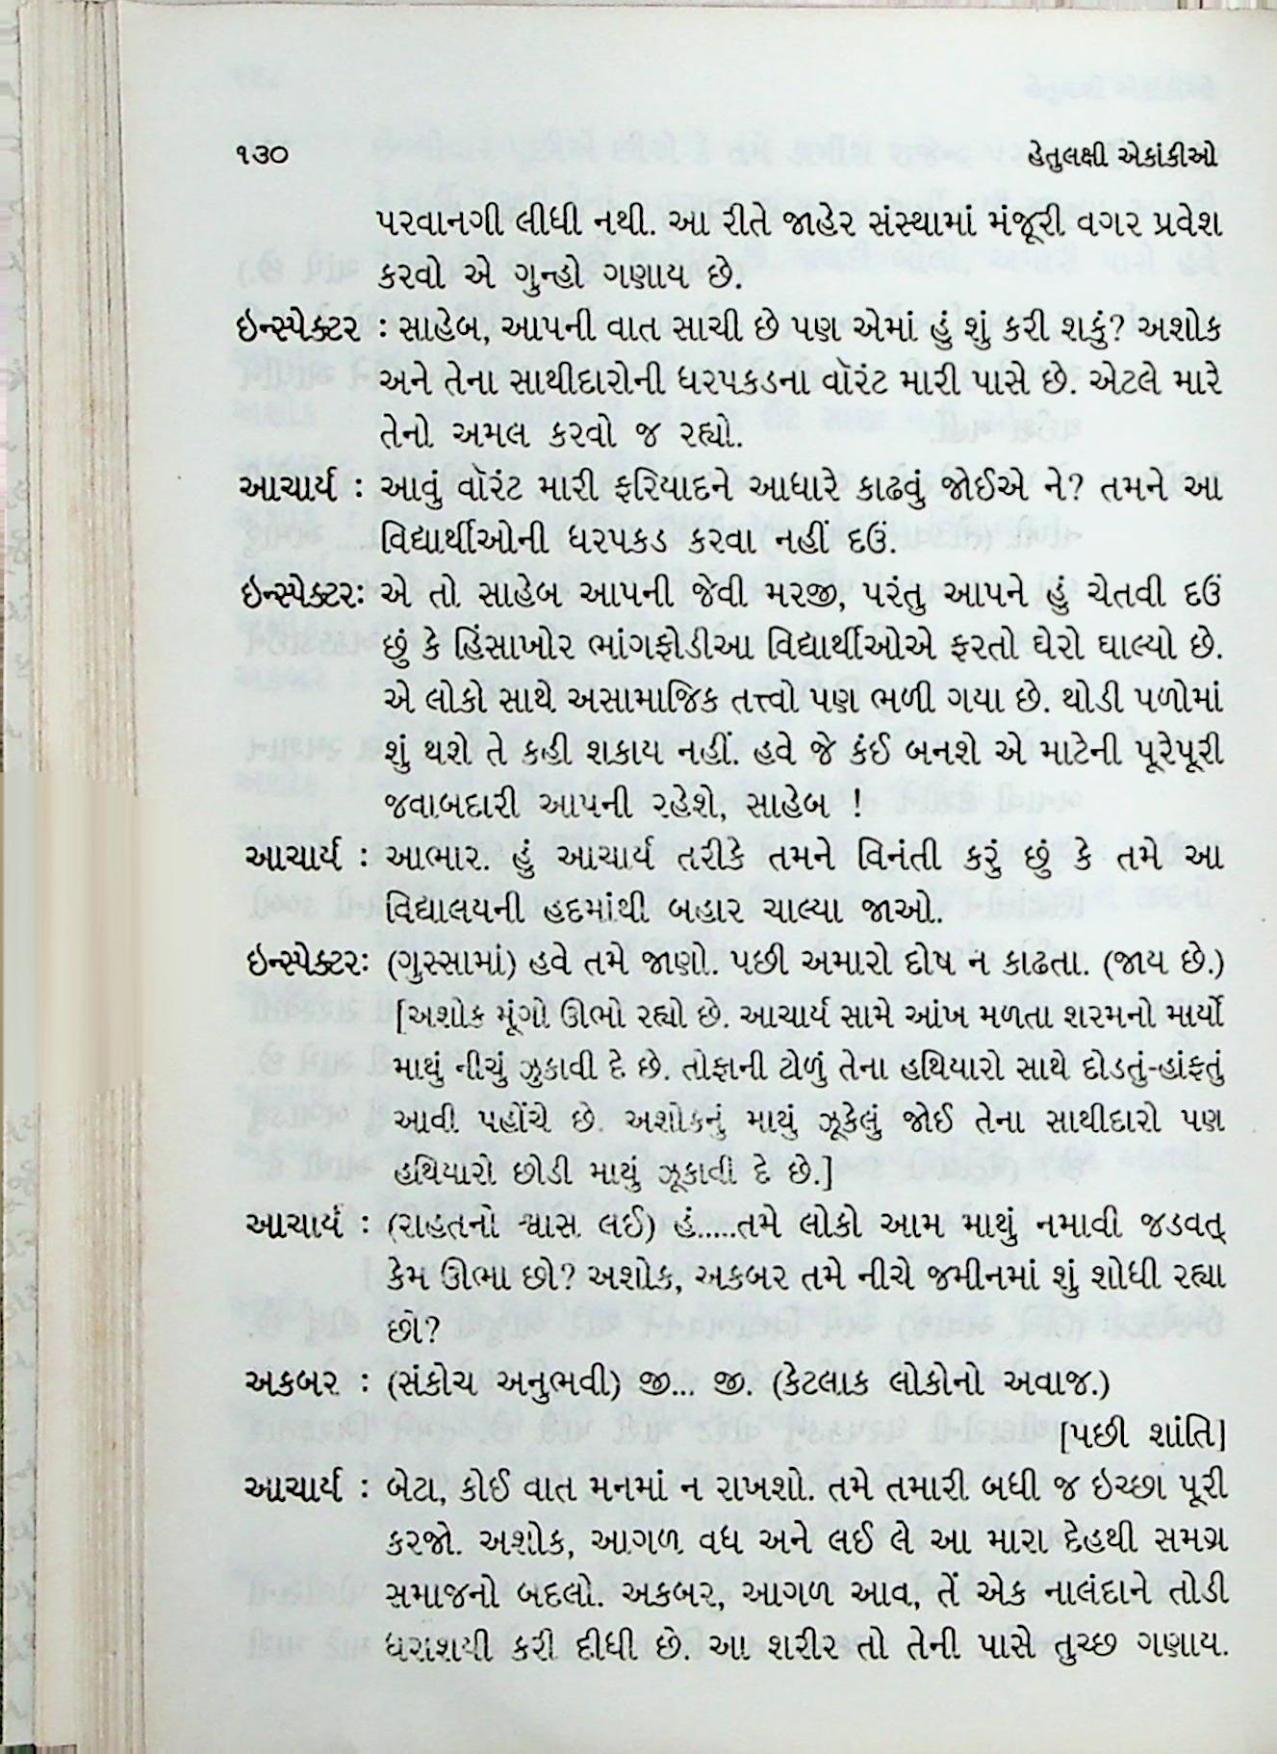 ૧૩૦ હેતુલક્ષી એકાંકીઓ
પરવાનગી લીધી નથી. આ રીતે જાહેર સંસ્થામાં મંજૂરી વગર પ્રવેશ
કરવો એ ગુન્હો ગણાય છે.
ઇન્સ્પેક્ટર : સાહેબ, આપની વાત સાચી છે પણ એમાં હું શું કરી શકું? અશોક
અને તેના સાથીદારોની ધરપકડના વૉરંટ મારી પાસે છે. એટલે મારે
તેનો અમલ કરવો જ રહ્યો.
આચાર્ય : આવું વૉરંટ મારી ફરિયાદને આધારે કાઢવું જોઈએ ને? તમને આ
વિદ્યાર્થીઓની ધરપકડ કરવા નહીં દઉં.
ઇન્સ્પેક્ટર: એ તો સાહેબ આપની જેવી મરજી, પરંતુ આપને હું ચેતવી દઉં
છું કે હિંસાખોર ભાંગફોડીઆ વિદ્યાર્થીઓએ ફરતો ઘેરો ઘાલ્યો છે.
એ લોકો સાથે અસામાજિક તત્ત્વો પણ ભળી ગયા છે. થોડી પળોમાં
શું થશે તે કહી શકાય નહીં. હવે જે કંઈ બનશે એ માટેની પૂરેપૂરી
જવાબદારી આપની રહેશે, સાહેબ !
આચાર્ય : આભાર. હું આચાર્ય તરીકે તમને વિનંતી કરું છું કે તમે આ
વિદ્યાલયની હદમાંથી બહાર ચાલ્યા જાઓ.
ઇન્સ્પેક્ટર: (ગુસ્સામાં) હવે તમે જાણો. પછી અમારો દોષ ન કાઢતા. (જાય છે.)
[અશોક મૂંગો ઊભો રહ્યો છે. આચાર્ય સામે આંખ મળતા શરમનો માર્યો
માથું નીચું ઝુકાવી દે છે. તોફાની ટોળું તેના હથિયારો સાથે દોડતું-હાંફતું
આવી પહોંચે છે. અશોકનું માથું ઝૂકેલું જોઈ તેના સાથીદારો પણ
હથિયારો છોડી માથું ઝૂકાવી દે છે.]
આચાર્ય : (રાહતનો શ્વાસ લઈ) હં.....તમે લોકો આમ માથું નમાવી જડવત્
કેમ ઊભા છો? અશોક, અકબર તમે નીચે જમીનમાં શું શોધી રહ્યા
છો?
અકબર : (સંકોચ અનુભવી) જી... જી. (કેટલાક લોકોનો અવાજ.)
[પછી શાંતિ]
આચાર્ય : બેટા, કોઈ વાત મનમાં ન રાખશો. તમે તમારી બધી જ ઇચ્છા પૂરી
કરજો. અશોક, આગળ વધ અને લઈ લે આ મારા દેહથી સમગ્ર
સમાજનો બદલો. અકબર, આગળ આવ, તેં એક નાલંદાને તોડી
ધરાશયી કરી દીધી છે. આ શરીર તો તેની પાસે તુચ્છ ગણાય.